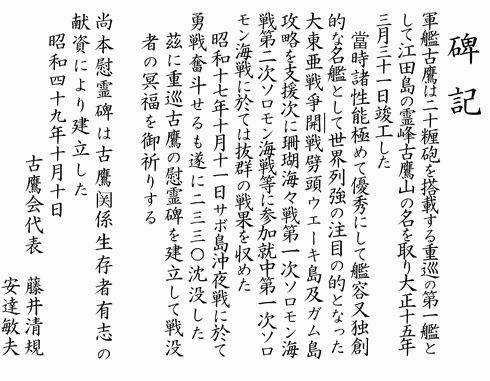 碑記
軍艦古鷹は二十糎砲を搭載する重巡の第一艦と
して江田島の霊峰古鷹山の名を取り大正十五年
三月三十一日竣工した
當時諸性能極めて優秀にして艦容又独創
的な名艦として世界列強の注目の的となった
大東亜戦争開戦劈頭ウエーキ島及ガム島
攻略を支援次に珊瑚海々戦第一次ソロモン海
戦第二次ソロモン海戦等に参加就中第一次ソロ
モン海戦に於ては抜群の戦果を収めた
昭和十七年十月十一日サボ島沖夜戦に於て
勇戦奮斗せるも遂に二二三〇沈没した
茲に重巡古鷹の慰霊碑を建立して戦没
者の冥福を御祈りする
尚本慰霊碑は古鷹関係生存者有志の
献資により建立した
昭和四十九年十月十日
古鷹会代表 藤井清規
安達敏夫